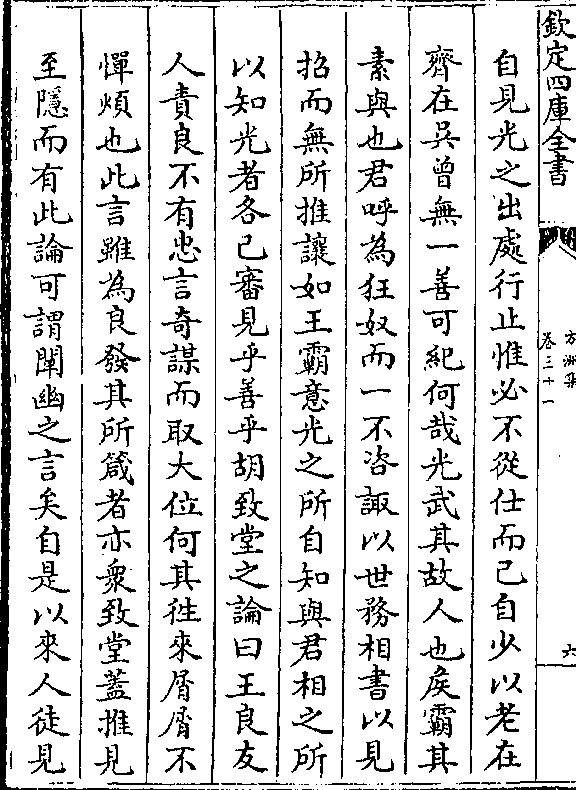 欽定四庫全書
方洲集
卷三十一
六
自見光之出處行止惟必不從仕而已自少以老在
齊在吳曾無一善可紀何哉光武其故人也侯霸其
素與也君呼為狂奴而一不咨諏以世務相書以見
招而無所推讓如王霸意光之所自知與君相之所
以知光者各已審見乎善乎胡致堂之論曰王良友
人責良不有忠言奇謀而取大位何其徃來屑屑不
憚煩也此言雖為良發其所箴者亦衆致堂蓋推見
至隱而有此論可謂闡幽之言矣自是以來人徒見